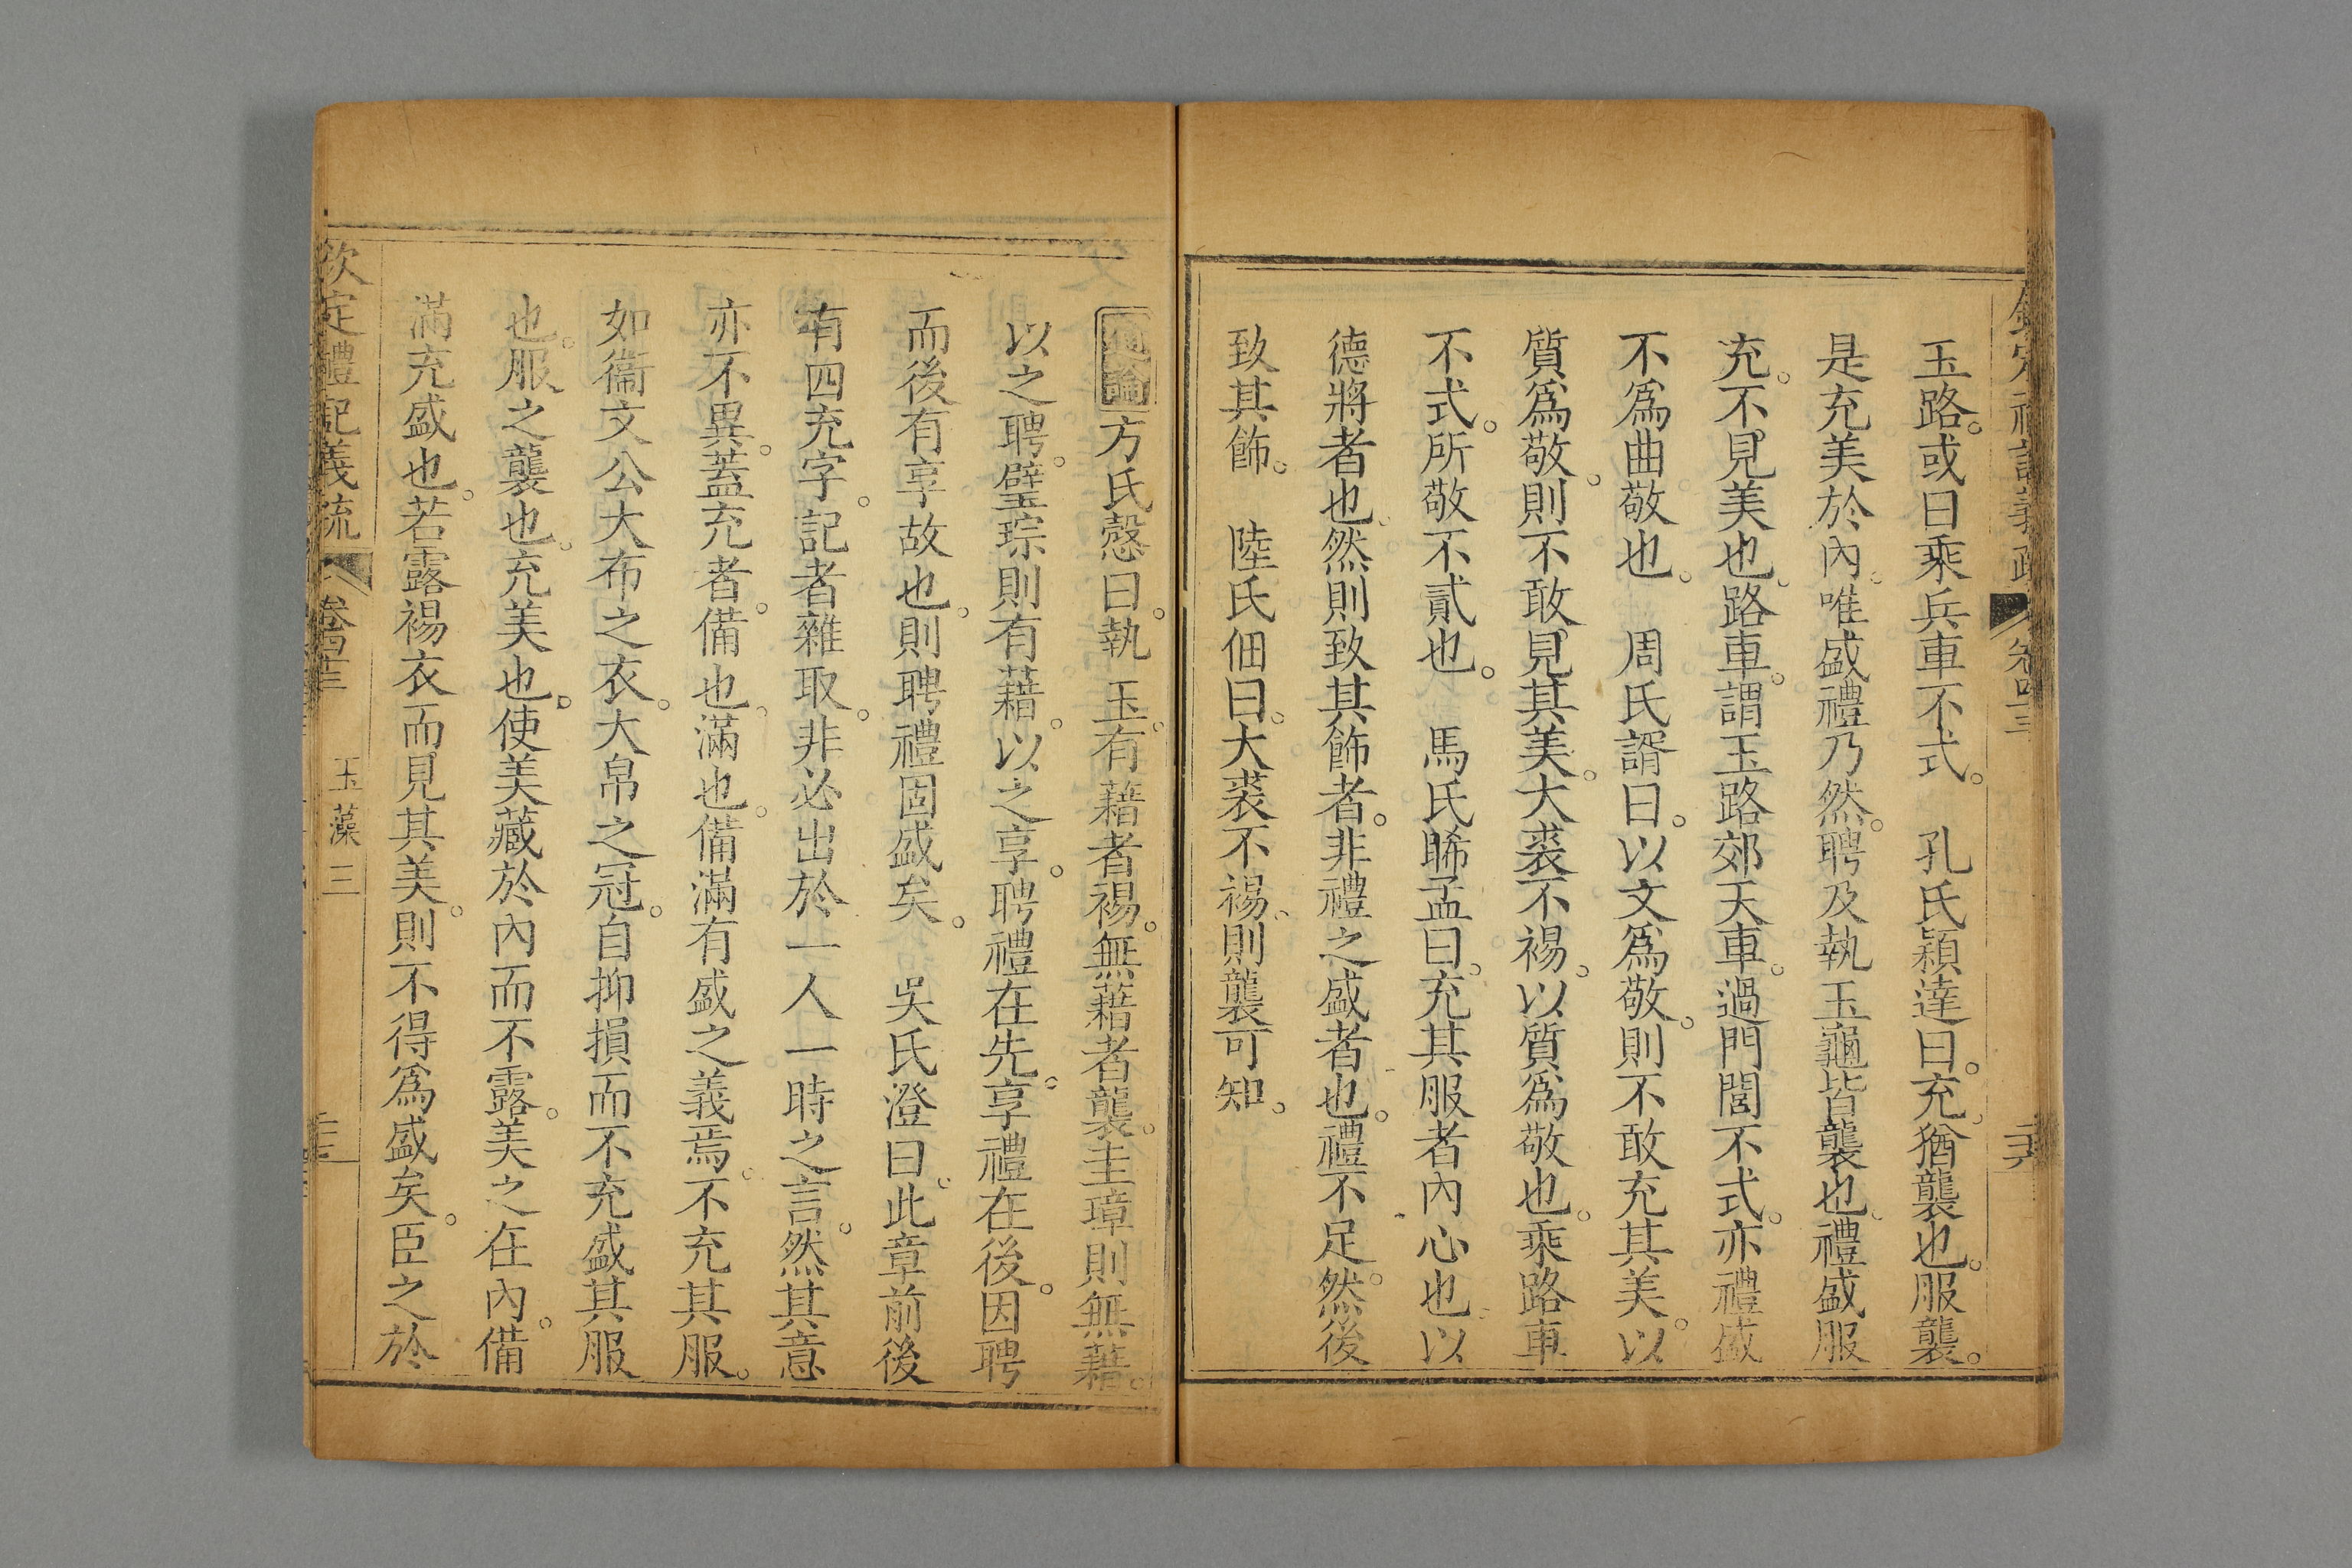 玉路。或曰乘兵車不式。　孔氏穎達曰。充、猶襲也。服襲。
是充美於內。唯盛禮乃然。聘及執玉龜皆襲也。禮盛服
充。不見美也。路車。謂玉路郊天車。過門閭不式。亦禮盛
不爲曲敬也。　周氏諝曰。以文爲敬。則不敢充其美。以
質爲敬。則不敢見其美。大裘不裼。以質爲敬也。乘路車
不式。所敬不貳也。　馬氏睎孟曰。充其服者內心也。以
德將者也。然則致其飾者。非禮之盛者也。禮不足然。後
致其飾。　陸氏佃曰。大裘不裼、則襲可知。
通論方氏慤曰。執玉。有藉者裼。無藉者襲。圭璋則無藉。
以之聘。璧琮則有藉。以之享。聘禮在先。享禮在後。因聘
而後有享故也。則聘禮固盛矣。　吳氏澄曰。此章前後
有四充字。記者雜取。非必出於一人一時之言。然其意
亦不異。蓋充者。備也、滿也。備滿有盛之義焉。不充其服。
如衞文公大布之衣。大帛之冠。自抑損而不充盛其服
也。服之襲也。充美也。使美藏於內而不露。美之在內。備
滿充盛也。若露裼衣而見其美。則不得爲盛矣。臣之於
欽定禮記義疏　卷四十三　玉藻三